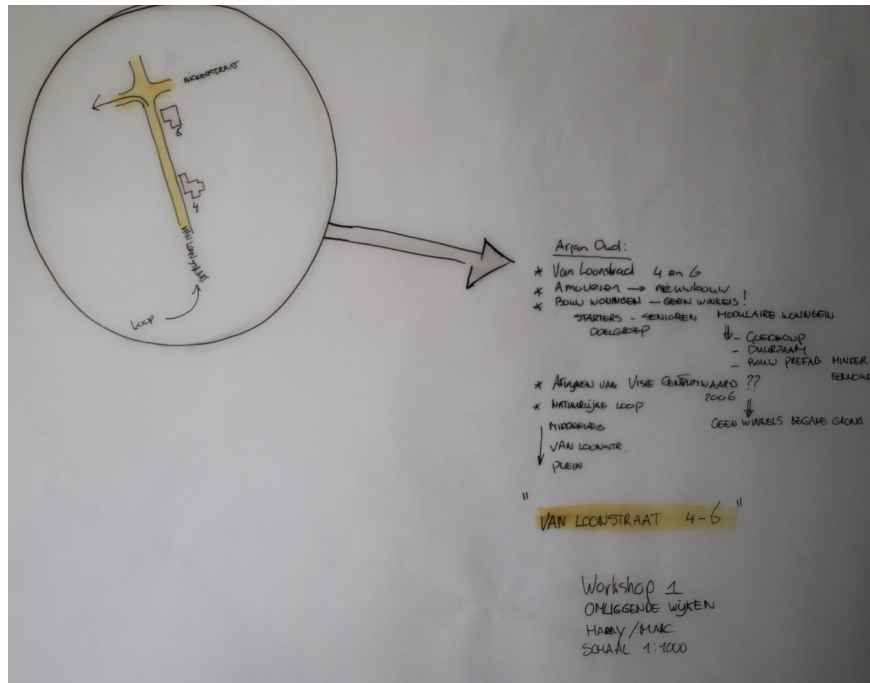 6
4
VAN LOONSTRAAT
LOOP
Arjan Oud:
* Van Loonstraat 4 en 6
* Amoveren → nieuwbouw
* BOUW WONINGEN – GEEN WINKELS!
STARTERS – SENIOREN
DOELGROEP
MODULAIRE WONINGEN
- GOEDKOOP
- DUURZAAM
- BOUW PREFAB MINDER
* AFWIJKEN VAN VISIE CENTRUMWAARD ??
2006
* NATUURLIJKE LOOP
GEEN WINKELS BEGANE GROND
MIDDENWEG
VAN LOONSTR.
PLEIN
"VAN LOONSTRAAT 4-6"
Workshop 1
OMLIGGENDE WIJKEN
HARRY/MARC
SCHAAL 1:1000